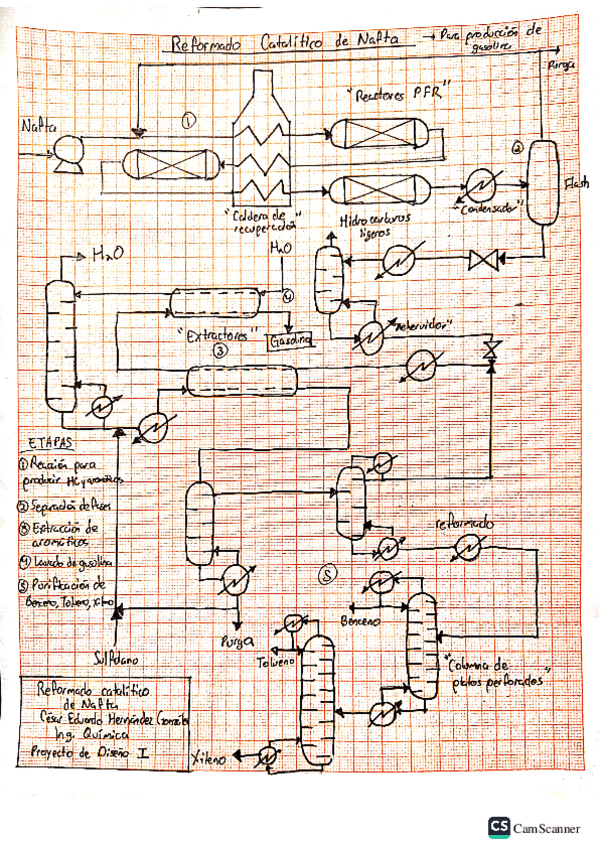 Reformado Catalítico de Nafta → Para producción de
gasolina
Purga
Nafta
①
"Reactores PFR"
②
Flash
"Condensador"
"Caldera de
recuperación"
Hidrocarburos
ligeros
H₂O
H₂O
④
"rehervidor"
"Extractores"
③
Gasolina
ETAPAS
① Reacción para
producir HC y aromáticos
② Separación de fases
③ Extracción de
aromáticos
④ Lavado de gasolina
⑤ Purificación de
Benceno, Tolueno, Xileno
reformado
⑤
Benceno
Purga
Tolueno
"Columna de
platos perforados"
Sulfolano
Xileno
Reformado catalítico
de Nafta
César Eduardo Hernández González
Ing. Química
Proyecto de Diseño I
CS CamScanner